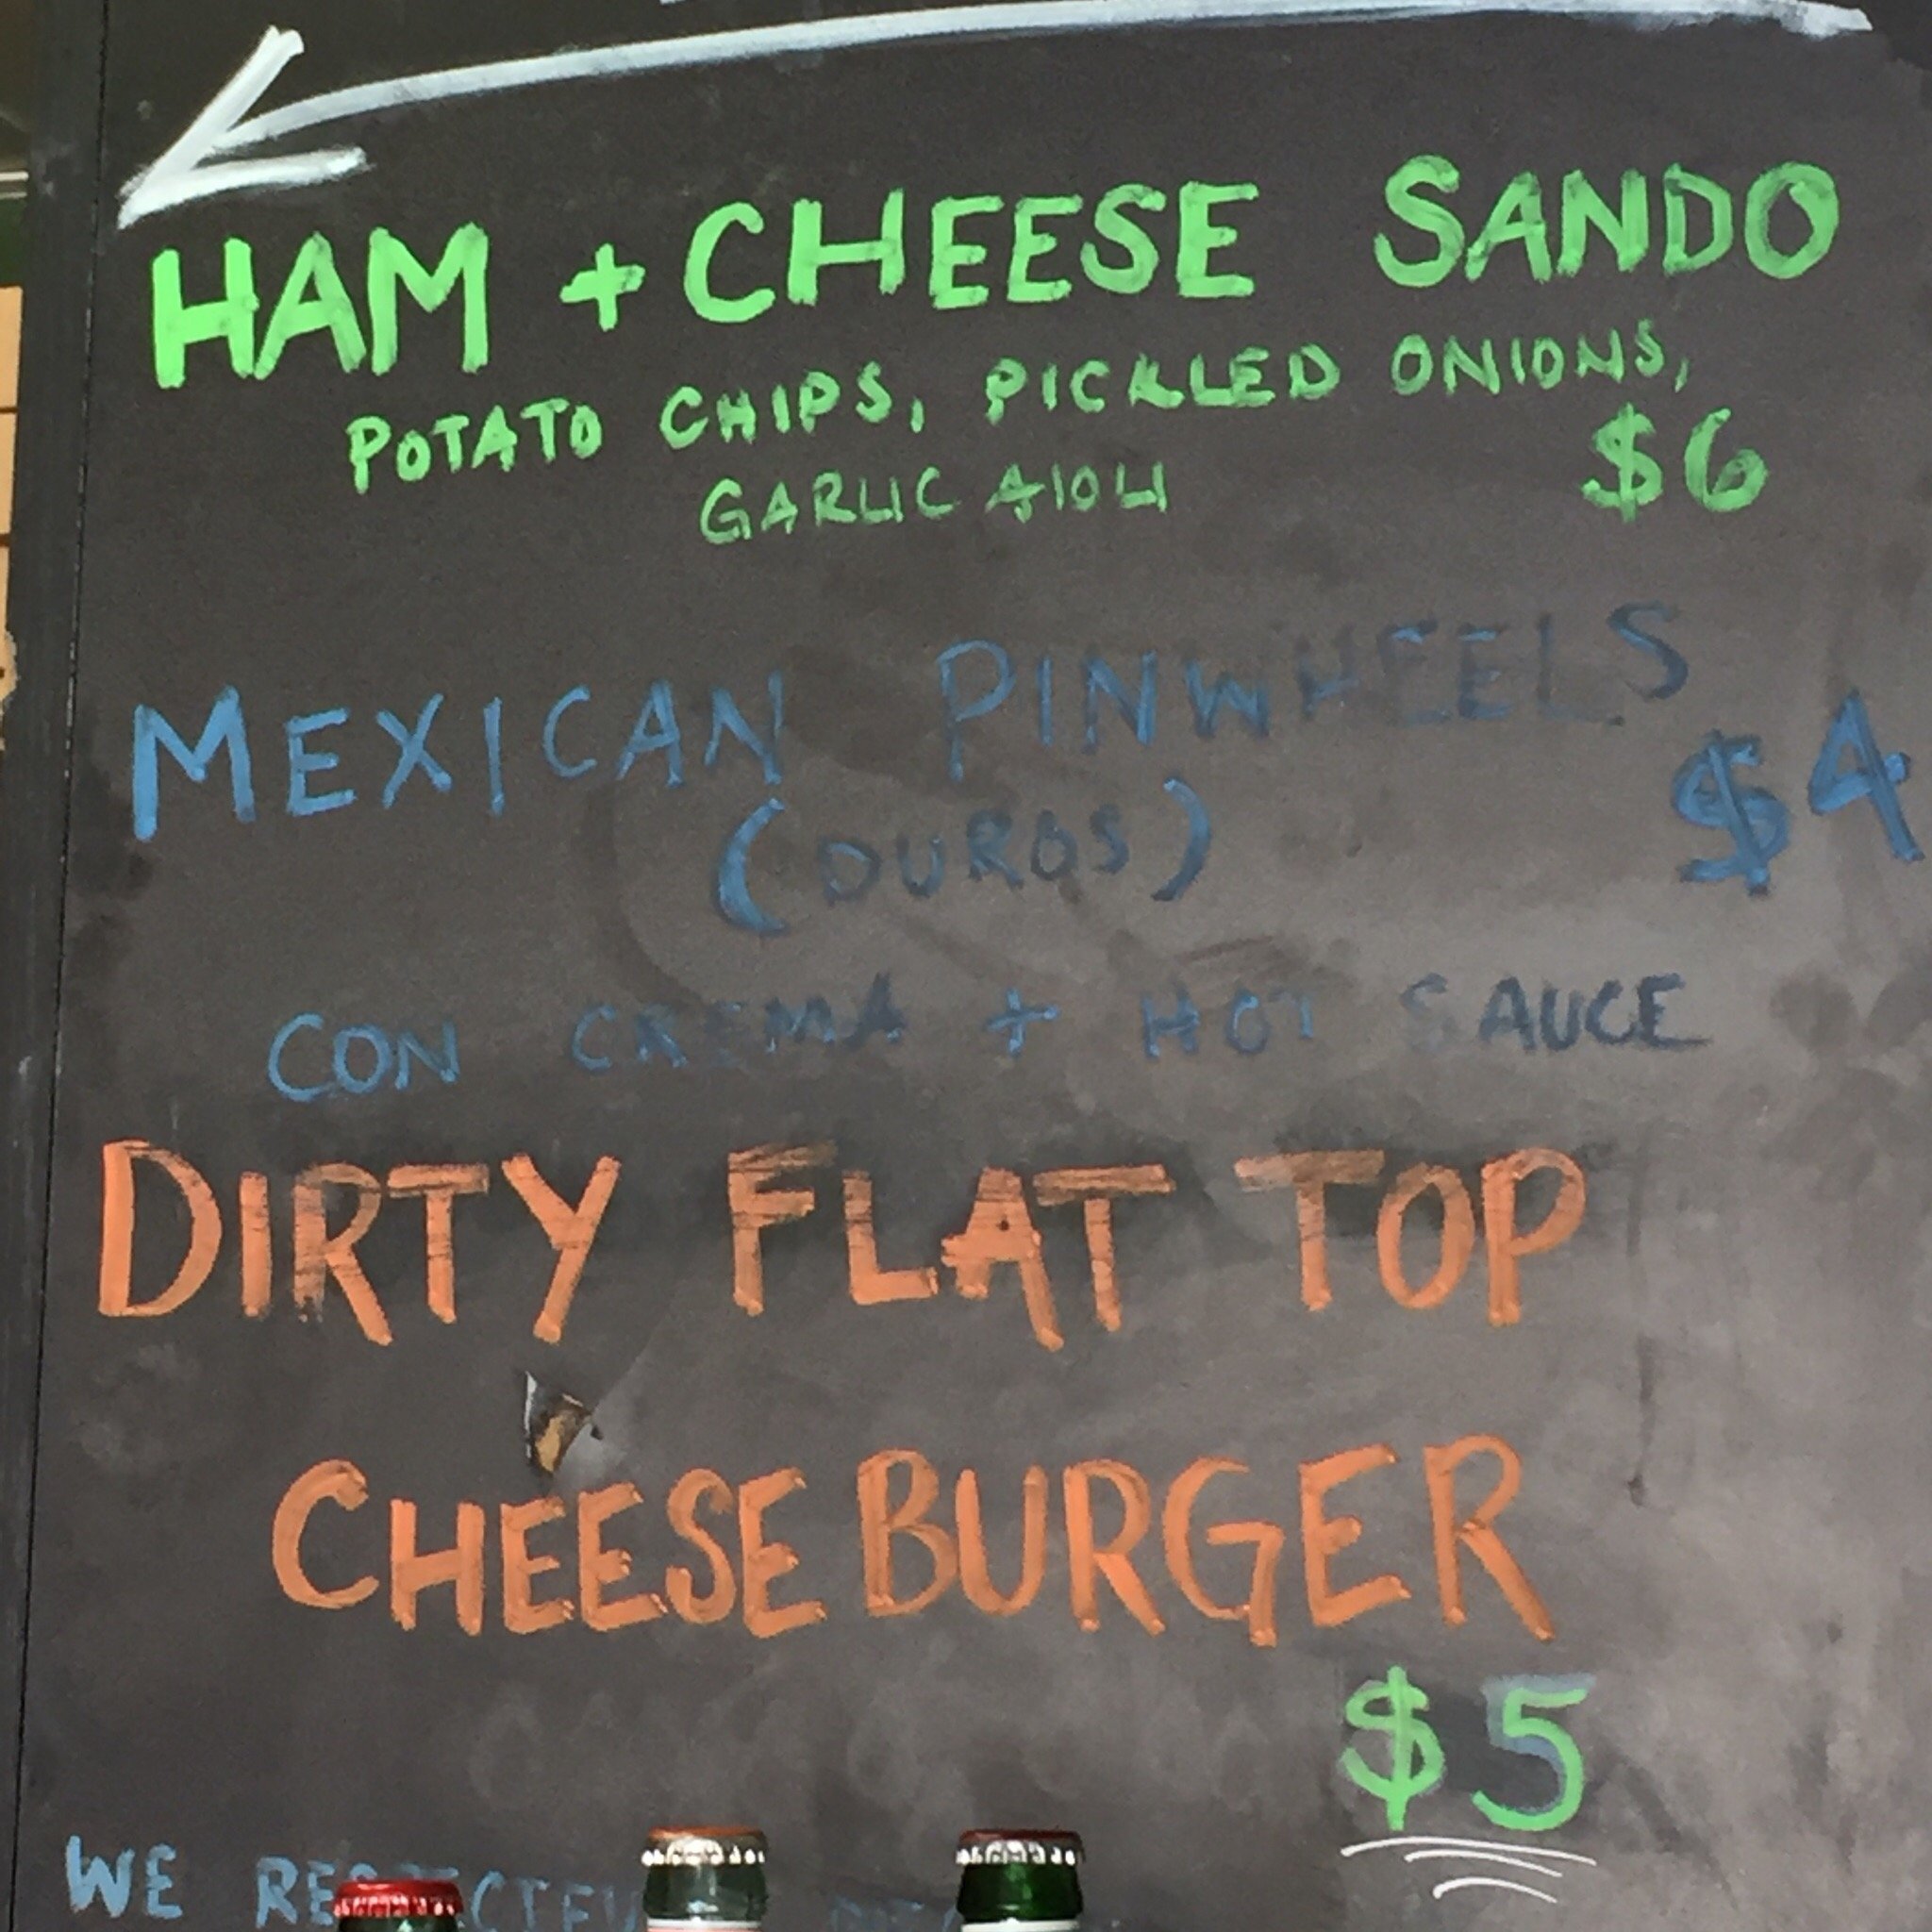 HAM + CHEESE SANDO
POTATO CHIPS, PICKLED ONIONS,
GARLIC AIOLI $6
MEXICAN PINWHEELS
(DUROS) $4
CON CREMA + HOT SAUCE
DIRTY FLAT TOP
CHEESEBURGER
$5
WE